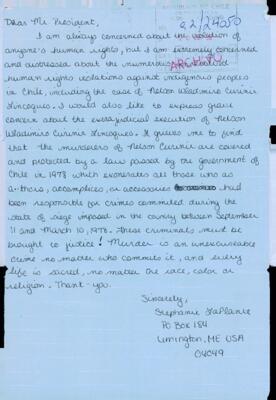 Dear Mr. President,
92/24050
ARCHIVO
I am always concerned about the violation of
anyone's human rights, but I am extremely concerned
and distressed about the numerous
human rights violations against indigenous peoples
in Chile, including the case of Nelson Wladimiro Curiñir
Lincoqueo. I would also like to express grave
concern about the extrajudicial execution of Nelson
Wladimiro Curiñir Lincoqueo. It grieves me to find
that the murderers of Nelson Curiñir are covered
and protected by a law passed by the government of
Chile in 1978 which exonerates all those who as
authors, accomplices, or accessories had
been responsible for crimes committed during the
state of siege imposed in the country between September
11 and March 10, 1978. These criminals must be
brought to justice! Murder is an unexcuseable
crime no matter who commits it, and every
life is sacred, no matter the race, color or
religion. Thank-you.
Sincerely,
Stephanie LaPlante
PO Box 184
Limington, ME USA
04049